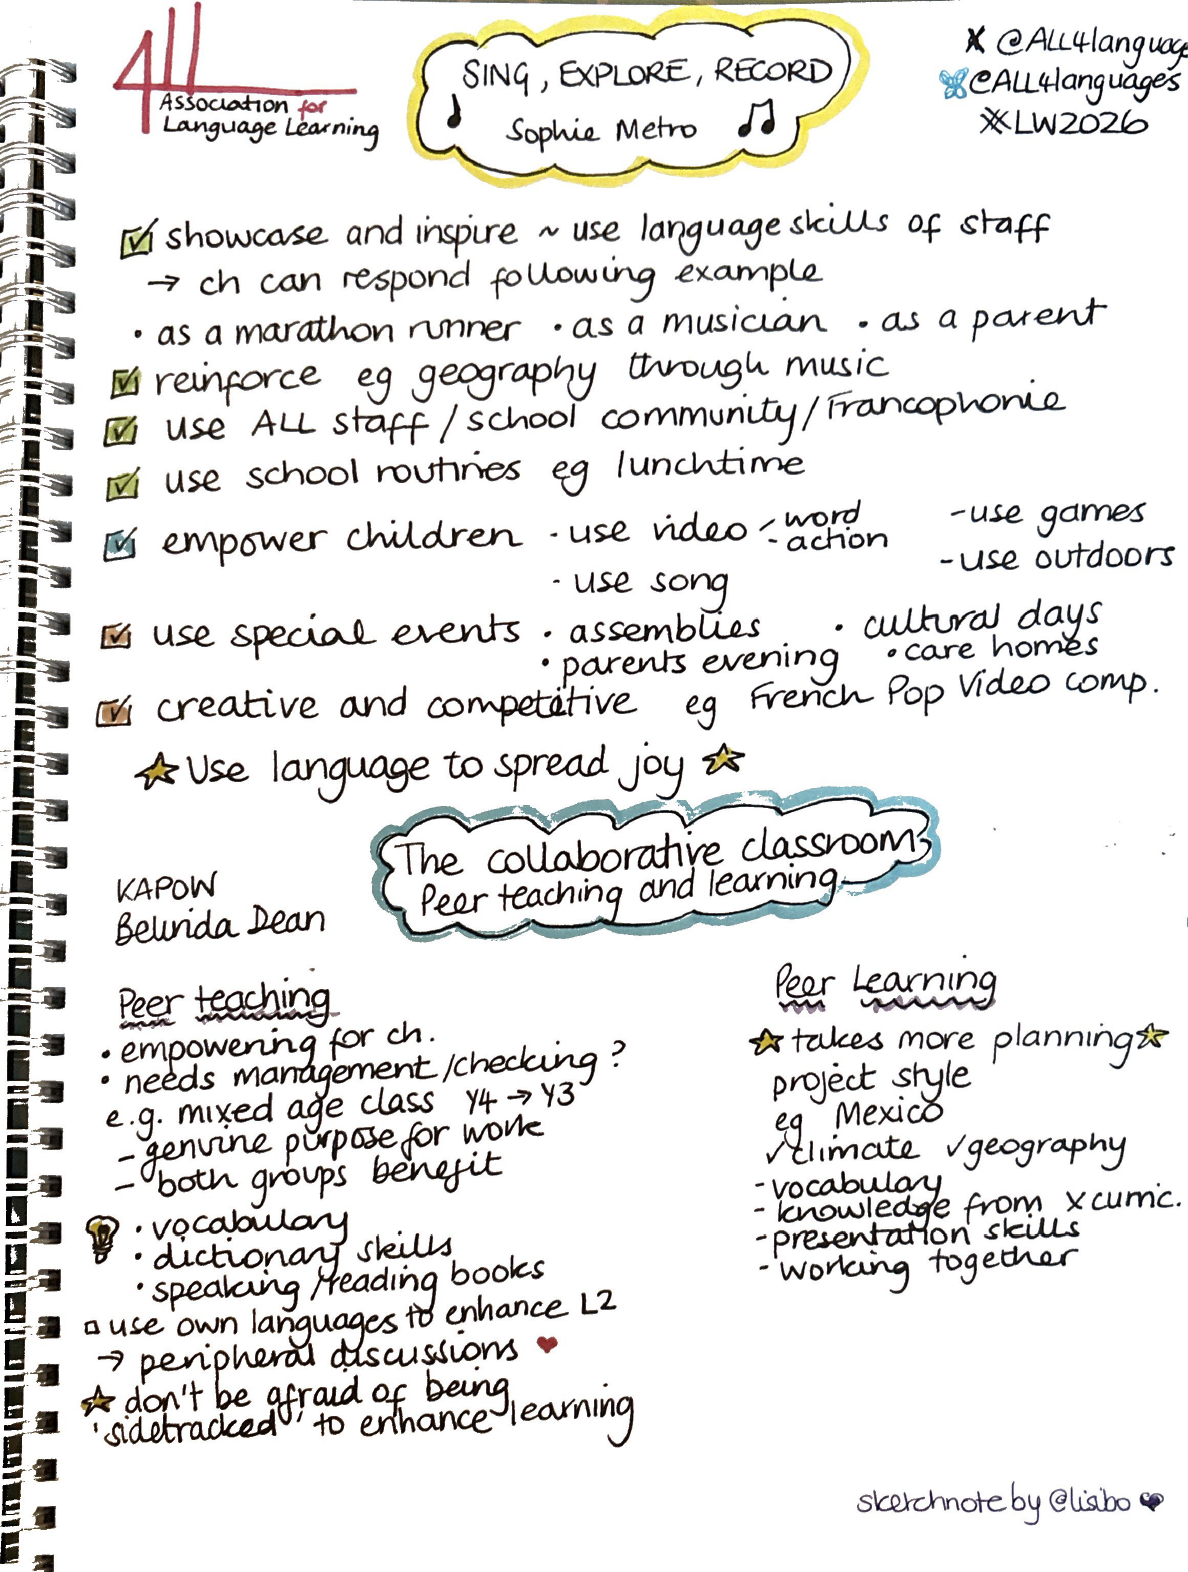 All
Association for
Language Learning
SING, EXPLORE, RECORD
Sophie Metro
X @ALL4language
@ALL4languages
#LW2026
showcase and inspire ~ use language skills of staff
→ ch can respond following example
• as a marathon runner • as a musician • as a parent
reinforce eg geography through music
use ALL staff / school community / Francophonie
use school routines eg lunchtime
empower children - use video - word - use games
- action
- use song - use outdoors
use special events • assemblies • cultural days
• parents evening • care homes
creative and competitive eg French Pop Video comp.
Use language to spread joy
The collaborative classroom
Peer teaching and learning
KAPOW
Belinda Dean
Peer teaching
• empowering for ch.
• needs management/checking?
e.g. mixed age class Y4 → Y3
- genuine purpose for work
- both groups benefit
• vocabulary
• dictionary skills
• speaking/reading books
□ use own languages to enhance L2
→ peripheral discussions ♥
☆ don't be afraid of being
'sidetracked' to enhance learning
Peer Learning
☆ takes more planning ☆
project style
eg Mexico
✓climate ✓geography
- vocabulary
- knowledge from x curric.
- presentation skills
- working together
sketchnote by @lisibo